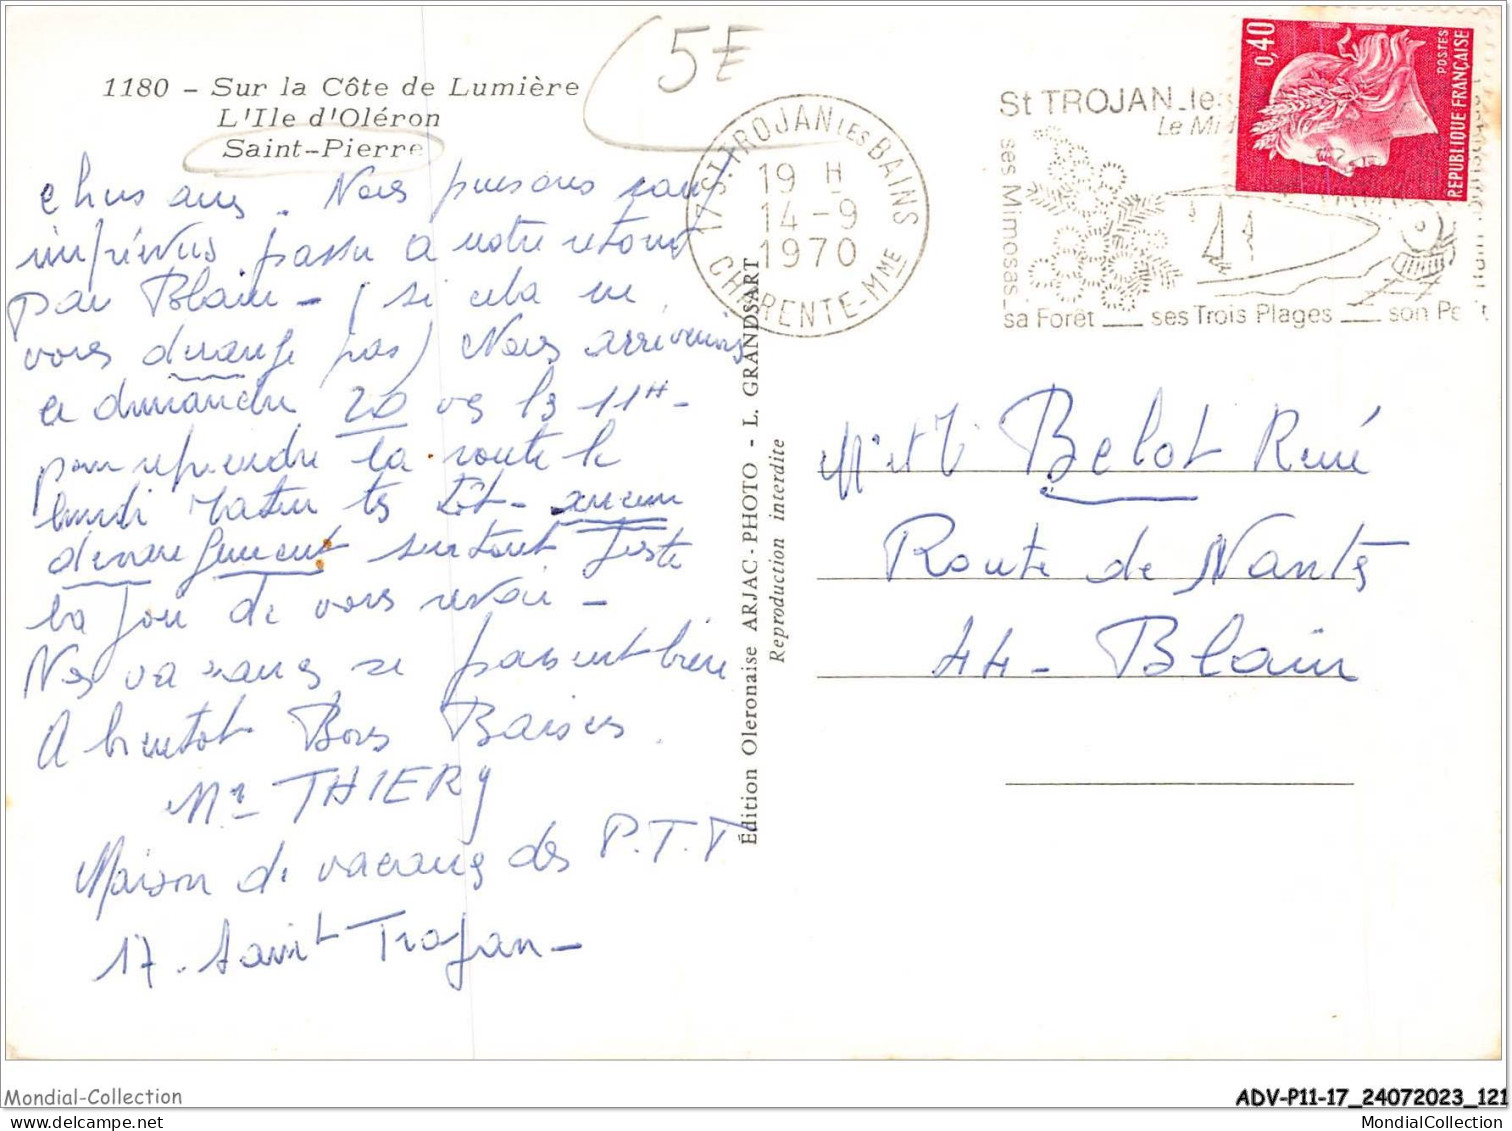 5E
1180 - Sur la Côte de Lumière
L'Ile d'Oléron
Saint-Pierre
Chers amis. Nous pensons sauf
imprévus passer à notre retour
par Blain - (si cela ne
vous dérange pas) Nous arriverions
le dimanche 20 vers les 11H -
pour reprendre la route le
lundi matin très tôt - aucun
dérangement surtout juste
la joie de vous revoir -
Nos vacances se passent bien
A bientôt Bons Baisers.
Mr THIERY
Maison de vacances des P.T.T
17. Saint Trojan -
Édition Oleronaise ARJAC-PHOTO - L. GRANDSART
Reproduction interdite
17 ST. TROJAN LES BAINS
19 H
14-9
1970
CHARENTE-MME
St TROJAN-les
Le Mi
ses Mimosas
sa Forêt ses Trois Plages son Pe
0,40
POSTES
REPUBLIQUE FRANÇAISE
Mr et Me Belot René
Route de Nantes
44 - Blain
Mondial-Collection
ADV-P11-17_24072023_121
www.mondialcollection.com
MondialCollection.com